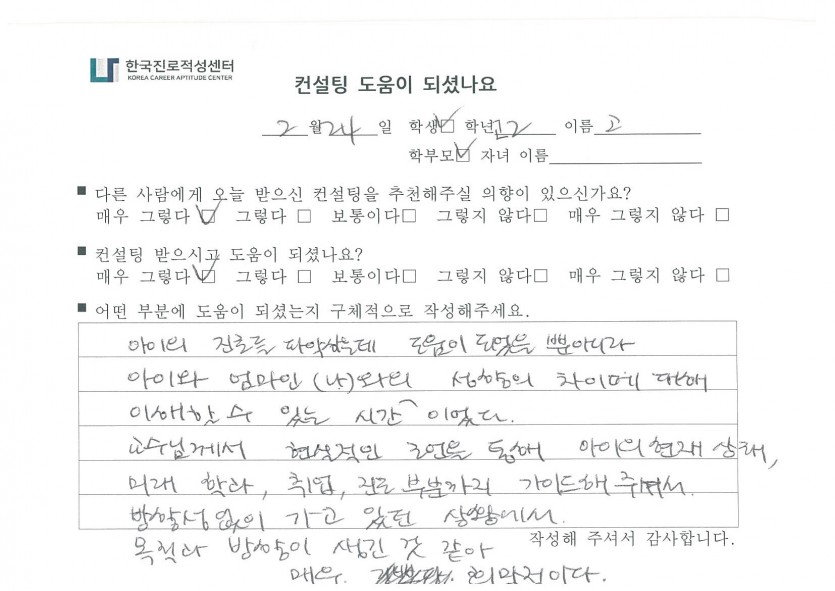 한국진로적성센터
KOREA CAREER APTITUDE CENTER
컨설팅 도움이 되셨나요
2 월 24 일 학생☑ 학년 고2 이름 고
학부모☑ 자녀 이름
■ 다른 사람에게 오늘 받으신 컨설팅을 추천해주실 의향이 있으신가요?
매우 그렇다 ☑ 그렇다 □ 보통이다□ 그렇지 않다□ 매우 그렇지 않다 □
■ 컨설팅 받으시고 도움이 되셨나요?
매우 그렇다 ☑ 그렇다 □ 보통이다□ 그렇지 않다□ 매우 그렇지 않다 □
■ 어떤 부분에 도움이 되셨는지 구체적으로 작성해주세요.
아이의 진로를 파악하는데 도움이 되었을 뿐아니라
아이와 엄마인 (나)와의 성향의 차이에 대해
이해할 수 있는 시간이었다.
교수님께서 현실적인 조언을 통해 아이의 현재 상태,
미래 학과, 취업, 진로 부분까지 가이드해 주셔서
방향성 없이 가고 있던 상황에서
목적과 방향이 생긴 것 같아
작성해 주셔서 감사합니다.
매우 희망적이다.